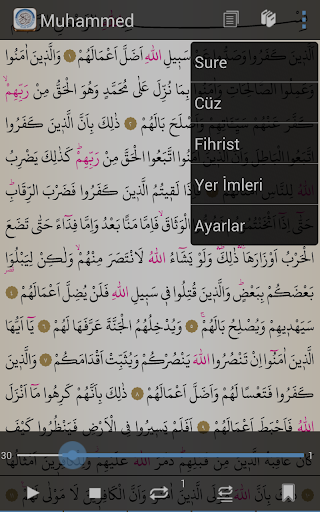 Muhammed
Sure
Cüz
Fihrist
Yer İmleri
Ayarlar
اَلَّذِينَ كَفَرُوا وَصَدُّوا عَنْ سَبِيلِ اللّٰهِ اَضَلَّ اَعْمَالَهُمْ ١ وَالَّذِينَ اٰمَنُوا
وَعَمِلُوا الصَّالِحَاتِ وَاٰمَنُوا بِمَا نُزِّلَ عَلٰى مُحَمَّدٍ وَهُوَ الْحَقُّ مِنْ رَبِّهِمْۙ
كَفَّرَ عَنْهُمْ سَيِّـَٔاتِهِمْ وَاَصْلَحَ بَالَهُمْ ٢ ذٰلِكَ بِاَنَّ الَّذِينَ كَفَرُوا
اتَّبَعُوا الْبَاطِلَ وَاَنَّ الَّذِينَ اٰمَنُوا اتَّبَعُوا الْحَقَّ مِنْ رَبِّهِمْۜ كَذٰلِكَ يَضْرِبُ
اللّٰهُ لِلنَّاسِ اَمْثَالَهُمْ ٣ فَاِذَا لَقِيتُمُ الَّذِينَ كَفَرُوا فَضَرْبَ الرِّقَابِۜ
حَتّٰٓى اِذَٓا اَثْخَنْتُمُوهُمْ فَشُدُّوا الْوَثَاقَۙ فَاِمَّا مَنًّا بَعْدُ وَاِمَّا فِدَٓاءً حَتّٰى تَضَعَ
الْحَرْبُ اَوْزَارَهَاۚ ذٰلِكَۜ وَلَوْ يَشَٓاءُ اللّٰهُ لَانْتَصَرَ مِنْهُمْۙ وَلٰكِنْ لِيَبْلُوَا
بَعْضَكُمْ بِبَعْضٍۜ وَالَّذِينَ قُتِلُوا فِي سَبِيلِ اللّٰهِ فَلَنْ يُضِلَّ اَعْمَالَهُمْ ٤
سَيَهْدِيهِمْ وَيُصْلِحُ بَالَهُمْۚ ٥ وَيُدْخِلُهُمُ الْجَنَّةَ عَرَّفَهَا لَهُمْ ٦ يَٓا اَيُّهَا
الَّذِينَ اٰمَنُٓوا اِنْ تَنْصُرُوا اللّٰهَ يَنْصُرْكُمْ وَيُثَبِّتْ اَقْدَامَكُمْ ٧ وَالَّذِينَ
كَفَرُوا فَتَعْسًا لَهُمْ وَاَضَلَّ اَعْمَالَهُمْ ٨ ذٰلِكَ بِاَنَّهُمْ كَرِهُوا مَٓا اَنْزَلَ
اللّٰهُ فَاَحْبَطَ اَعْمَالَهُمْ ٩ اَفَلَمْ يَسِيرُوا فِي الْاَرْضِ فَيَنْظُرُوا كَيْفَ
كَانَ عَاقِبَةُ الَّذِينَ مِنْ قَبْلِهِمْۜ دَمَّرَ اللّٰهُ عَلَيْهِمْ وَلِلْكَافِرِينَ اَمْثَالُهَا
30
1
ذٰلِكَ بِاَنَّ اللّٰهَ مَوْلَى الَّذِينَ اٰمَنُوا وَاَنَّ الْكَافِرِينَ لَا مَوْلٰى لَهُمْ